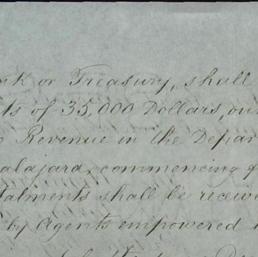 or Treasury, shall
of 35,000 Dollars, out
Revenue in the Depar
alajara, commencing
talments shall be receiv
by Agents empowered